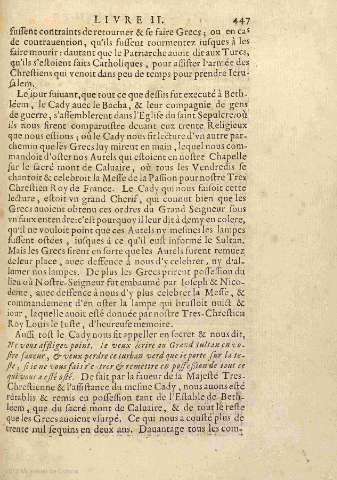 LIVRE II. 447
fussent contraints de retourner & se faire Grecs; ou en cas
de contrauention, qu'ils fussent tourmentez iusques à les
faire mourir: dautant que le Patriarche auoit dit aux Turcs,
qu'ils s'estoient faits Catholiques, pour assister l'armée des
Chrestiens qui venoit dans peu de temps prendre Ieru-
salem.
Le jour suiuant, que tout ce que dessus fut executé à Beth-
léem, le Cady auec le Bacha, & leur compagnie de gens
de guerre, s'assemblerent dans l'Eglise du saint Sepulcre où
ils nous firent comparoistre deuant eux trente Religieux
que nous estions; où le Cady nous fit lecture d'vn autre par-
chemin que les Grecs luy mirent en main, lequel nous com-
mandoit d'oster nos Autels qui estoient en nostre Chapelle
sur le sacré mont de Caluaire, où tous les Vendredis se
chantoit & celebroit la Messe de la Passion pour nostre Tres
Chrestien Roy de France. Le Cady qui nous faisoit cette
lecture, estoit vn grand Cherif, qui connut bien que les
Grecs auoient obtenu ces ordres du Grand Seigneur sous
vn faux entendre: c'est pourquoy il leur dit à demy en colere,
qu'il ne vouloit point que ces Autels ny mesmes les lampes
fussent ostées, iusques à ce qu'il eust informé le Sultan.
Mais les Grecs firent en sorte que les Autels furent remuez
de leur place, auec deffence à nous d'y celebrer, ny d'al-
lumer nos lampes. De plus les Grecs prirent possession du
lieu où Nostre Seigneur fut embaumé par Ioseph & Nico-
deme, auec deffence à nous d'y plus celebrer la Messe, &
commandement d'en oster la lampe qui brusloit nuict &
iour, laquelle auoit esté donnée par nostre Tres-Chrestien
Roy Louis le Iuste, d'heureuse memoire.
Aussi tost le Cady nous fit appeller en secret & nous dit,
Ne vous affligez point, ie veux écrire au Grand Sultan en vo-
stre faueur, & veux perdre ce turban verd que ie porte sur la te-
ste, si ie ne vous fais r'entrer & remettre en possession de tout ce
qui vous a esté osté. De fait par la faueur de la Majesté Tres-
Chrestienne & l'assistance du mesme Cady, nous auons esté
rétablis & remis en possession tant de l'Estable de Beth-
léem, que du sacré mont de Caluaire, & de tout le reste
que les Grecs auoient vsurpé. Ce qui nous a cousté plus de
trente mil sequins en deux ans. Dauantage tous les com-